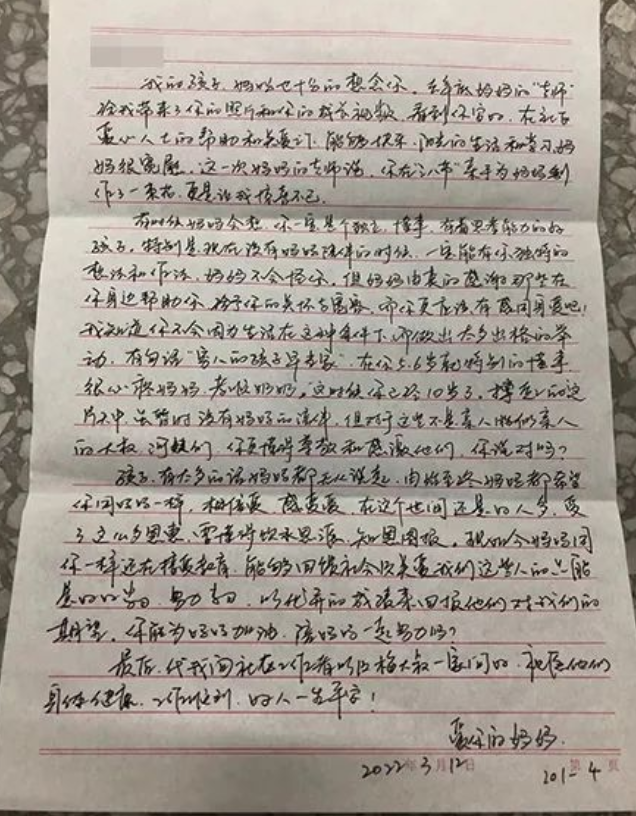 我的孩子,妈妈也十分的想念你。去年底妈妈的"老师"
给我带来了你的照片和你的成长视频,看到你写的,在社区
爱心人士的帮助和关爱下,能够快乐、阳光的生活和学习,妈
妈很宽慰。这一次妈妈的老师说,你在"三八节"亲手为妈妈制
作了一束花,更是让我惊喜不已。
有时候妈妈会想,你一定是个独立、懂事、有着思考能力的好
孩子。特别是现在没有妈妈陪伴的时候,一定能有你独特的
想法和作法,妈妈不会怪你。但妈妈由衷的感谢那些在
你身边帮助你、给予你的关怀与宽容,而你更应该有感同身受吧!
我知道你不会因为生活在这种条件下,而做出太多出格的举
动,有句话"穷人的孩子早当家",在你5、6岁就特别的懂事
很心疼妈妈,孝顺奶奶,这时候你已经10岁了,
但对于这些不是亲人胜似亲人
的大叔、阿姨们,你更懂得尊敬和感激他们,你说对吗?
孩子,有太多的话妈妈都无从说起,由始至终妈妈都希望
你同妈妈一样,相信爱,感受爱,在这个世间还是好人多,受
了这么多恩惠,要懂得饮水思源、知恩图报,现如今妈妈同
你一样还在接受教育,能够回馈社会及关爱我们这些人的只能
是好好学习、努力学习,以优异的成绩来回报他们对我们的
期望。你能为妈妈加油,陪妈妈一起努力吗?
最后,代我向社区工作者以及梅大叔一家问好,祝愿他们
身体健康、工作顺利、好人一生平安!
爱你的妈妈.
2022年3月12日
201-4
第 頁